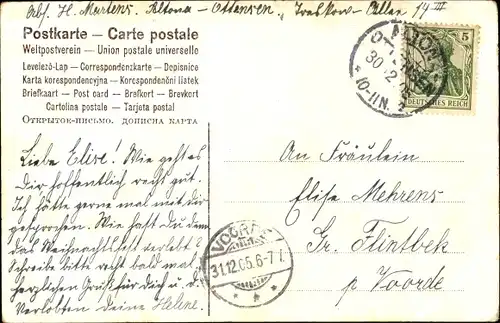 Abs. H. Martens. Altona - Ottensen, Treskow-Allee 14 III
Postkarte – Carte postale
Weltpostverein – Union postale universelle
Levelező-Lap – Correspondenzkarte – Dopisnice
Karta korespondencyjna – Korespondenční lístek
Briefkaart – Post card – Brefkort – Brevkort
Cartolina postale – Tarjeta postal
Открытое-письмо. дописна карта
ALTONA
OTTENSEN
30.12.05
*10-11N. 2
5
DEUTSCHES REICH
Liebe Elise! Wie geht es
Dir hoffentlich recht gut.
Ich hätte gerne mal mit dir
gesprochen. Wie hast Du denn
das Weihnachtsfest verlebt?
Schreibe bitte recht bald mal
herzlichen Gruß für Dich u. d.
Verlobten Deine Helene.
An Fräulein
Elise Mehrens
Gr. Flintbek
p Voorde
VOORDE
31.12.05.6-7